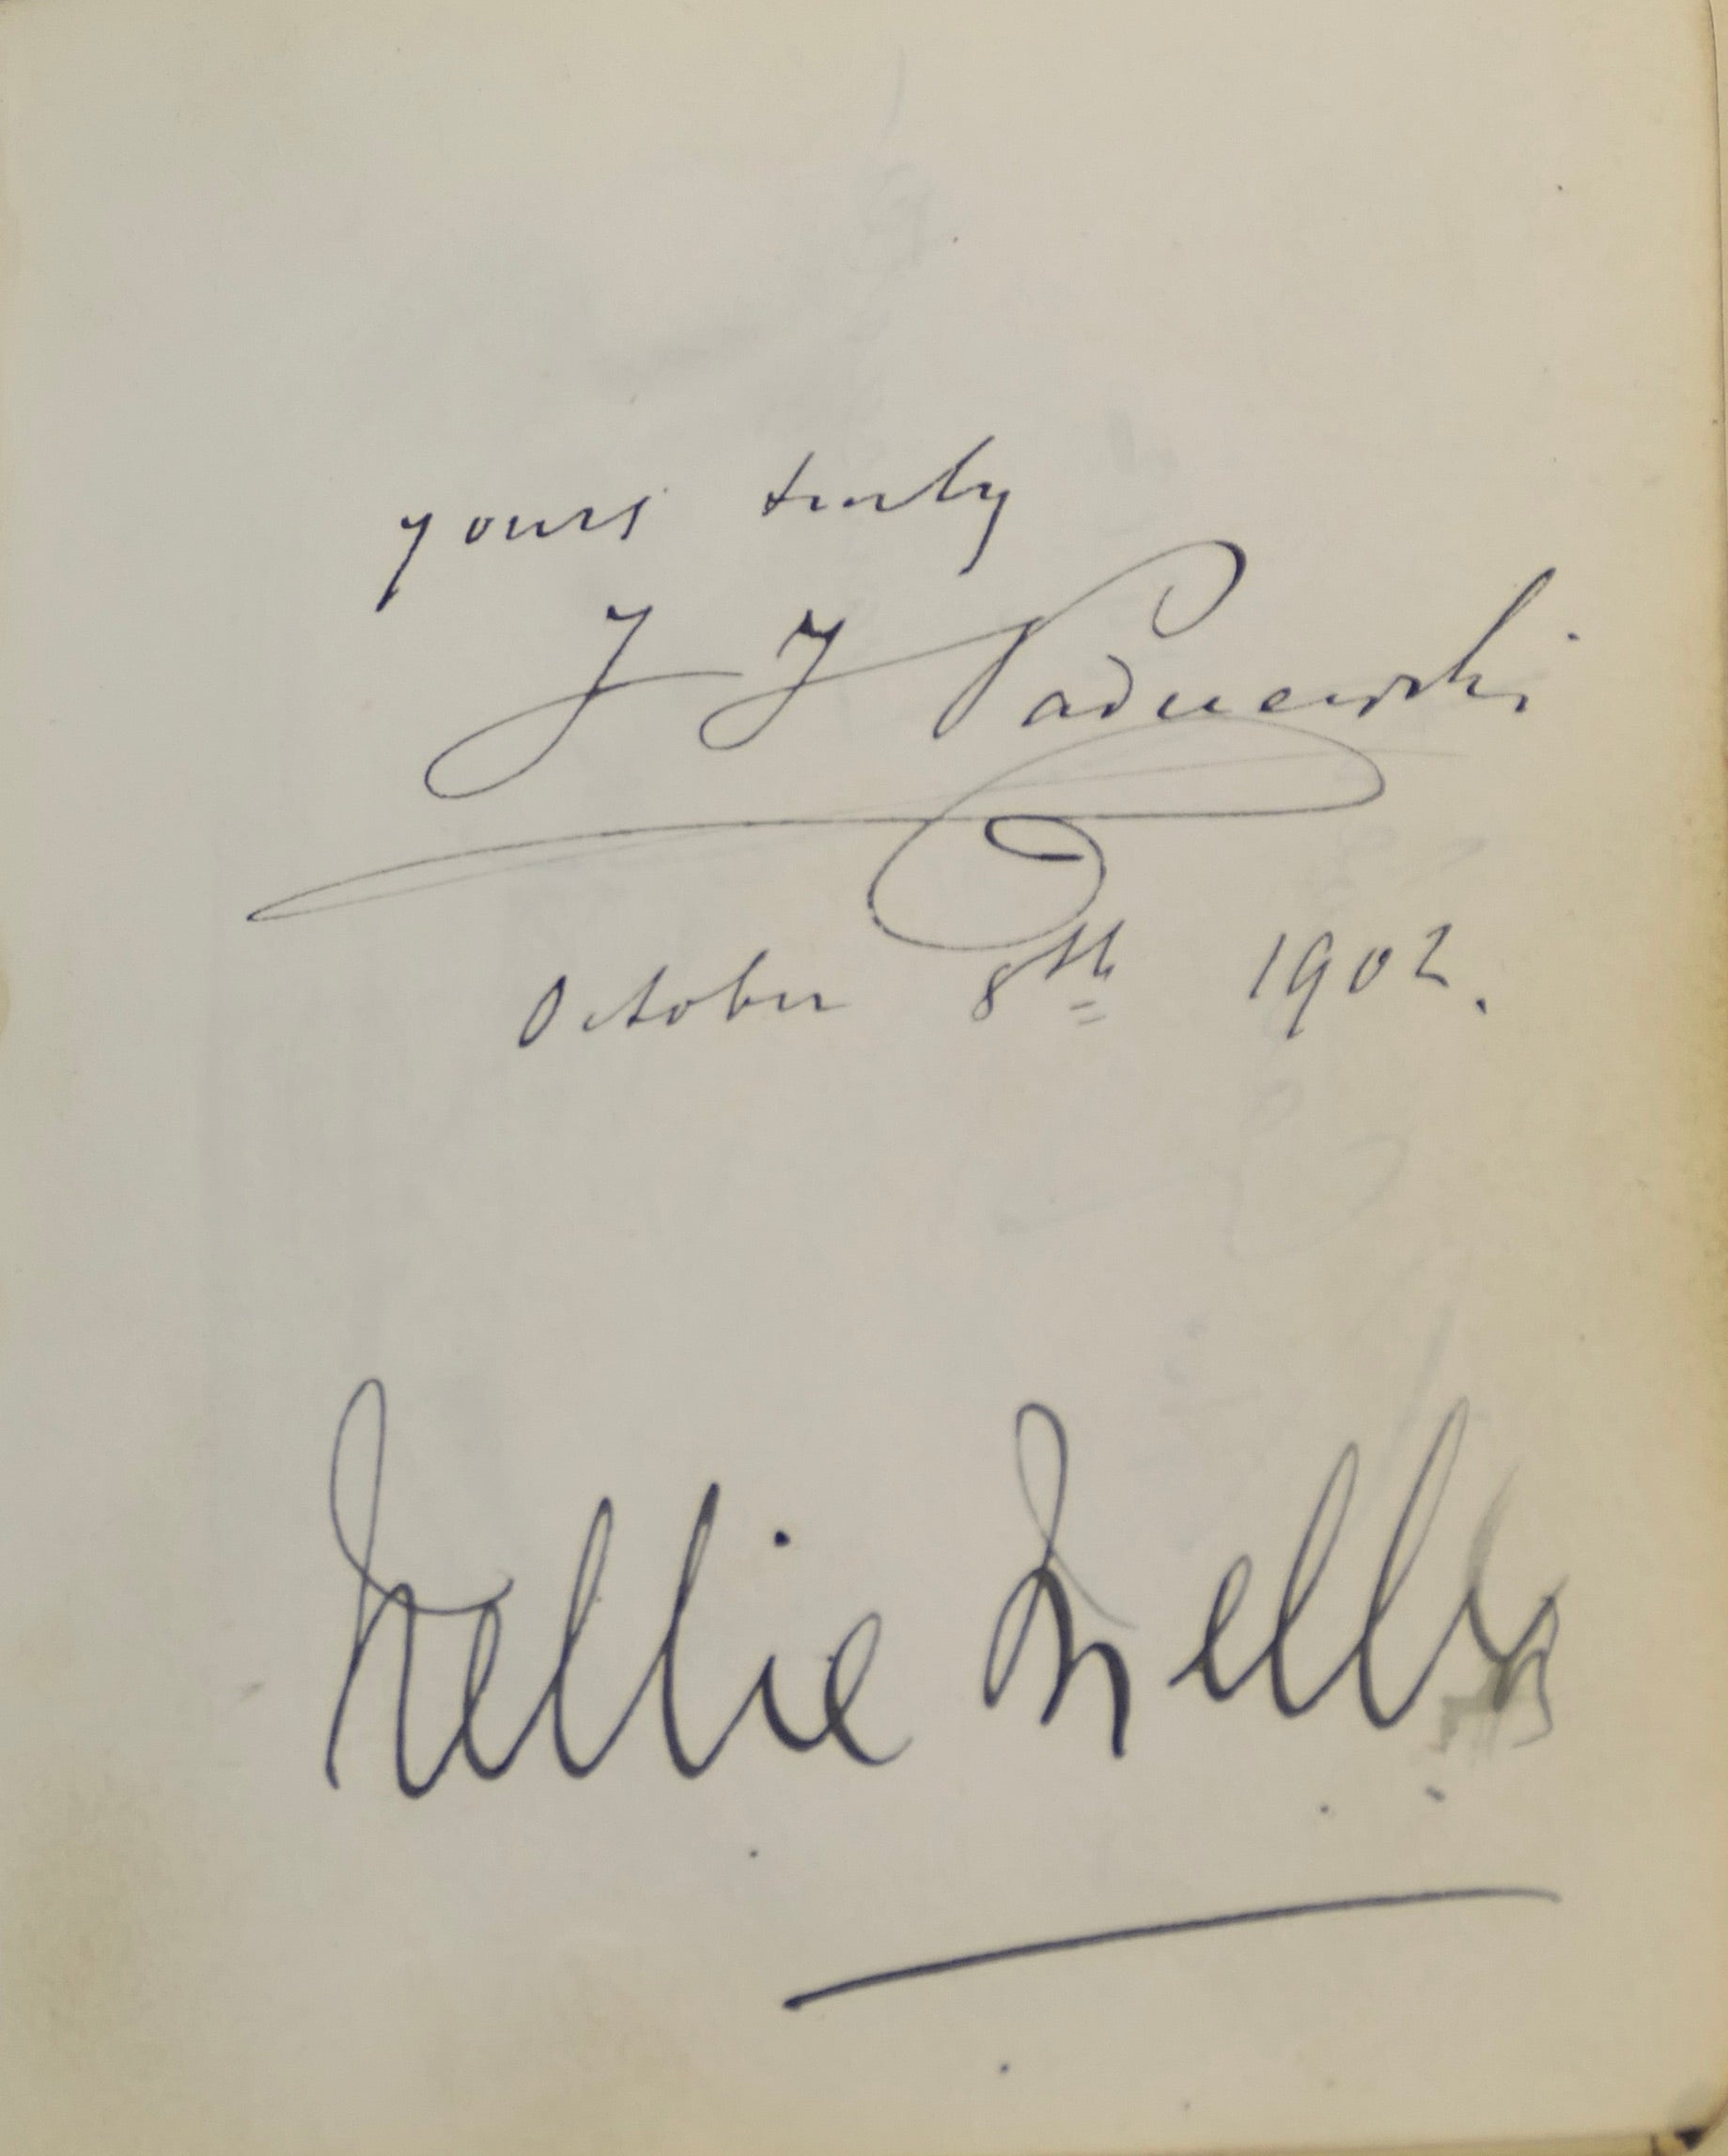 yours truly
I J Paderewski
October 8th 1902.
Nellie Melba